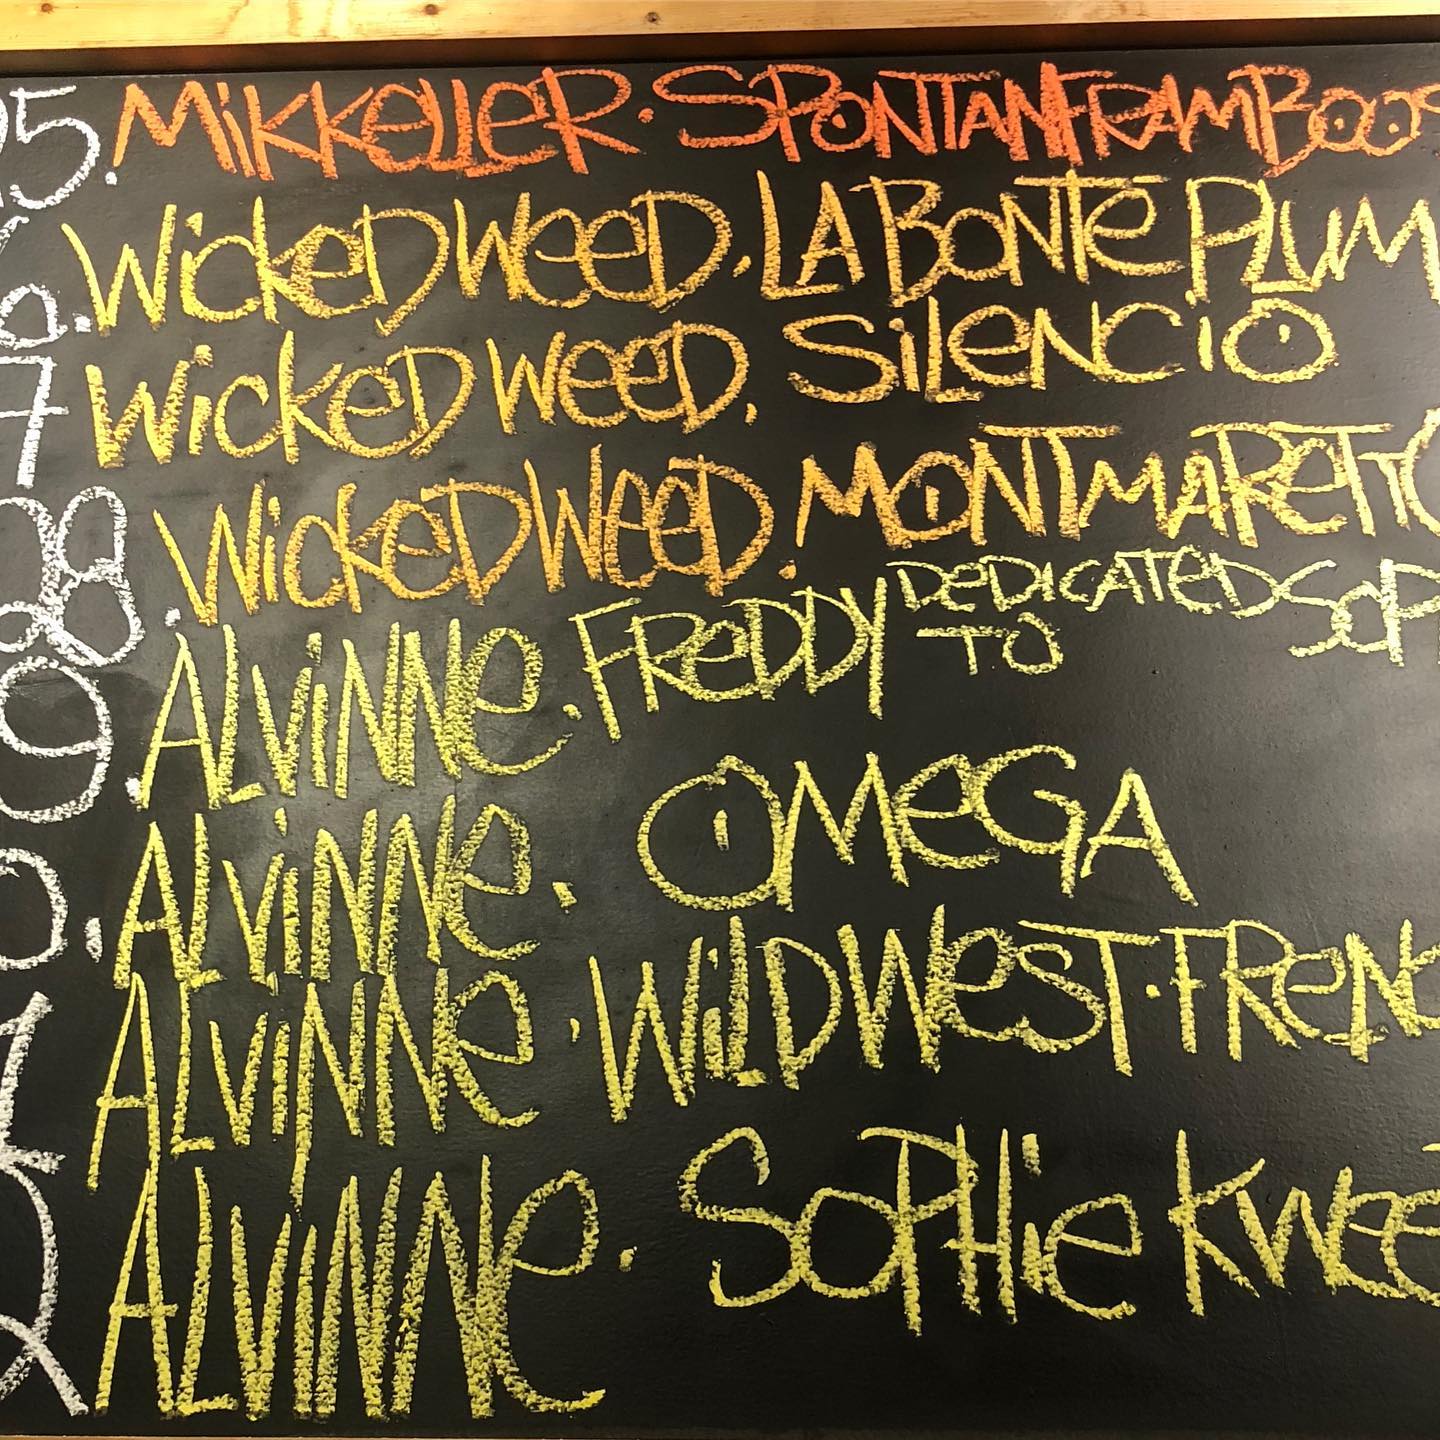 25. MIKKELLER. SPONTANFRAMBOOS
6. WICKED WEED. LA BONTĒ PLUM
7 WICKED WEED. SILENCIO
28. WICKED WEED. MONTMARETTO
9. ALVINNE. FREDDY DEDICATED TO SOP
0. ALVINNE. OMEGA
1 ALVINNE. WILD WEST. FREN
2 ALVINNE. SOPHIE KWEE